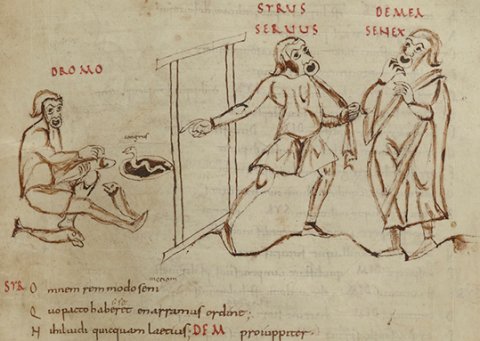 STRUS DEMEA
SERUUS SENEX
DROMO
STR O mnem rem modo seni
Q uo pacto haberet enarramus ordine;
N ihil uidi quicquam laetius; DEM pro iuppiter